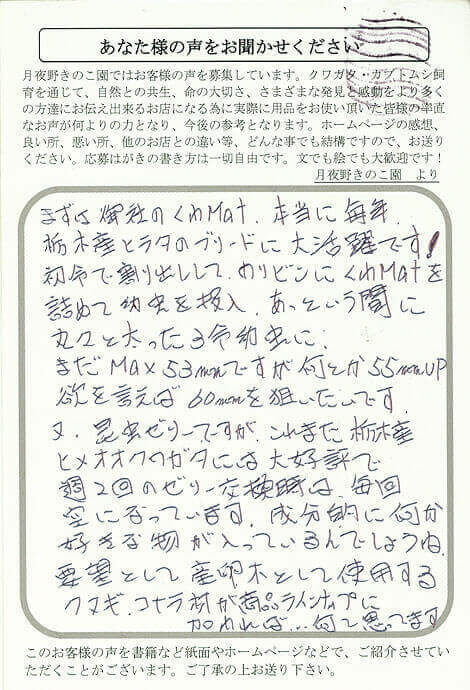 あなた様の声をお聞かせください
月夜野きのこ園ではお客様の声を募集しています。クワガタ・カブトムシ飼
育を通じて、自然との共生、命の大切さ、さまざまな発見と感動をより多く
の方達にお伝え出来るお店になる為に実際に用品をお使い頂いた皆様の率直
なお声が何よりの力となり、今後の参考となります。ホームページの感想、
良い所、悪い所、他のお店との違い等、どんな事でも結構ですので、お送り
ください。応募はがきの書き方は一切自由です。文でも絵でも大歓迎です！
月夜野きのこ園 より
まずは御社のくわMat、本当に毎年、
栃木産ヒラタのブリードに大活躍です!
初令で割り出しして、のリビンにくわMatを
詰めて幼虫を投入、あっという間に
丸々と太った3令幼虫に、
まだMax 53mmですが何とか55mmUP
欲を言えば60mmを狙いたいです。
又、昆虫ゼリーですが、これまた栃木産
ヒメオオクワガタには大好評で
週2回のゼリー交換時は、毎回
空になっています。成分的に何か
好きな物が入っているんでしょうね。
要望として産卵木として使用する
クヌギ、コナラ材が商品ラインナップに
加われば…何て思ってます
このお客様の声を書籍など紙面やホームページなどで、ご紹介させてい
ただくことがございます。ご了承の上お送り下さい。